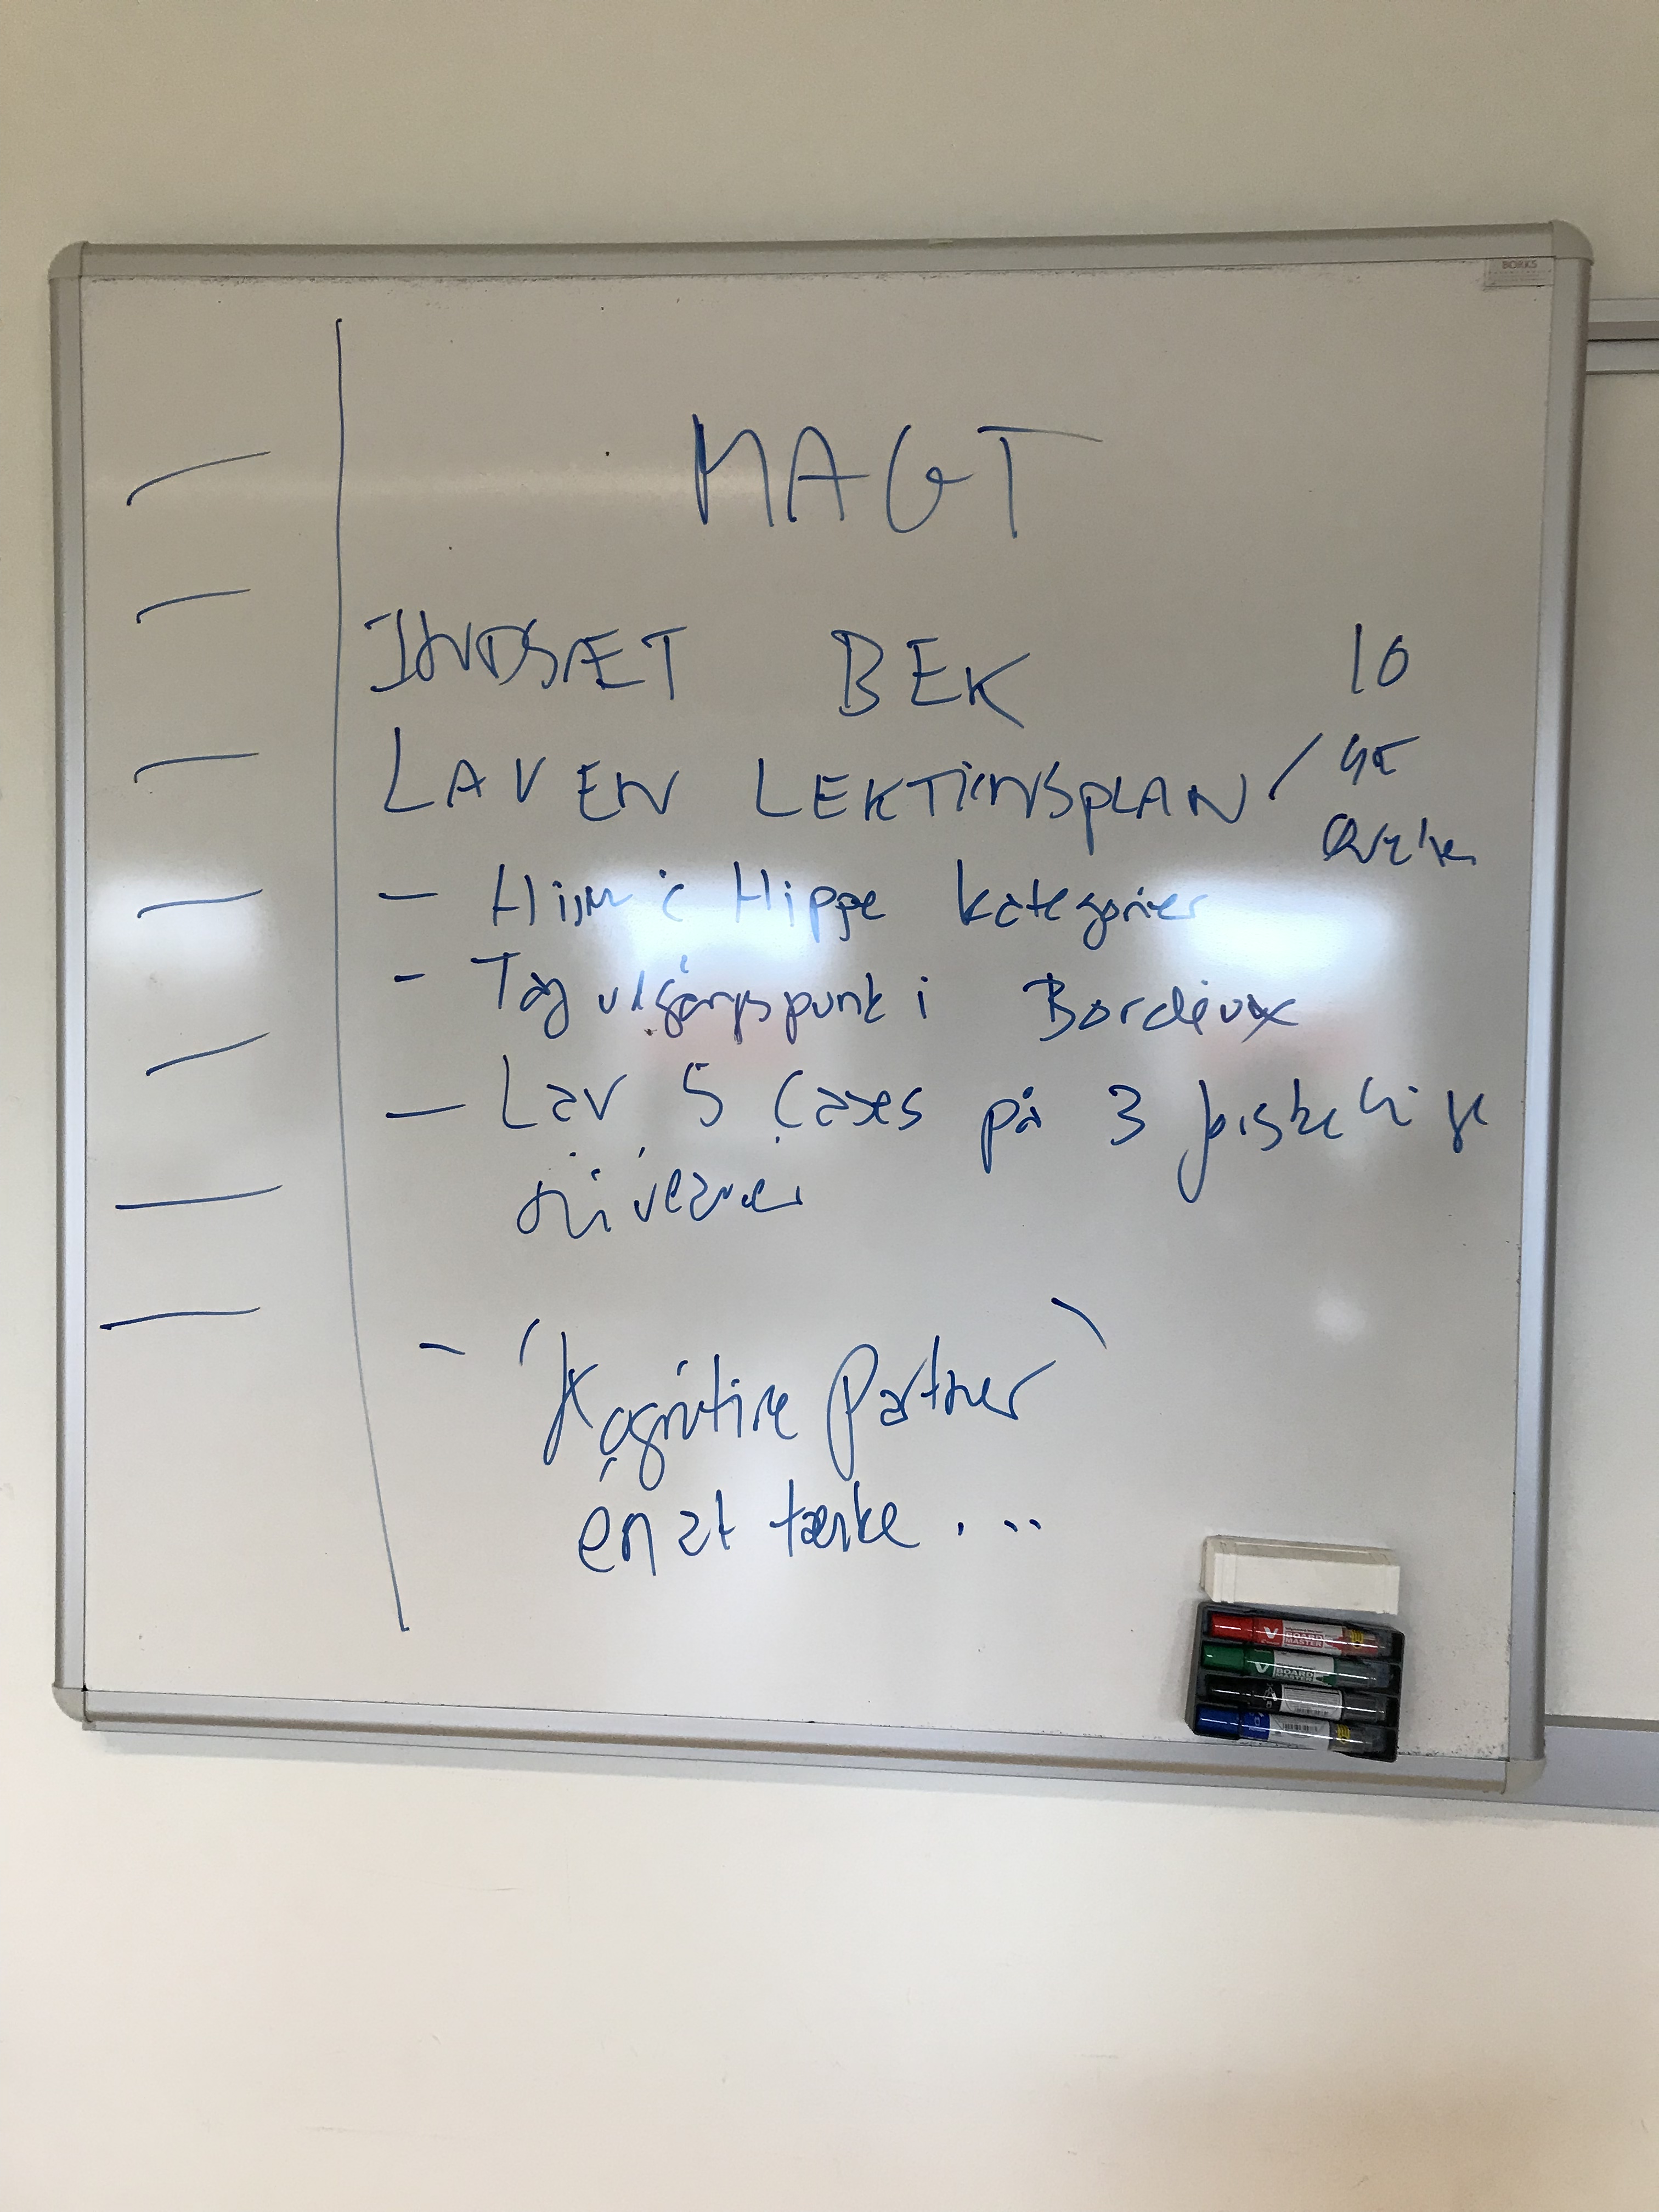 BORKS
MAGT
INDSÆT BEK 10
LAV EN LEKTIONSPLAN /
- Hiim & Hippe kategorier
- Tag udgangspunk i Bordieux
- Lav 5 Cases på 3 forskellige
niveauer
- "Kognitive Partner"
en at tænke ....
V BOARD MASTER
V BOARD MASTER